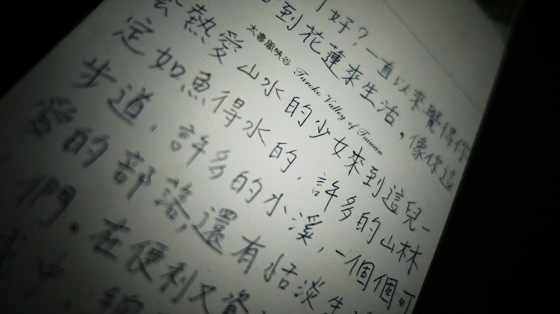 好?一直以來覺得你
到花蓮來生活,像你這
太魯閣峽谷 Taroko Valley of Taiwan
熱愛山水的少女來到這兒一
定如魚得水的,許多的山林
步道,許多的小溪,一個個可
愛的部落,還有恬淡生
們。在便利又資
中,